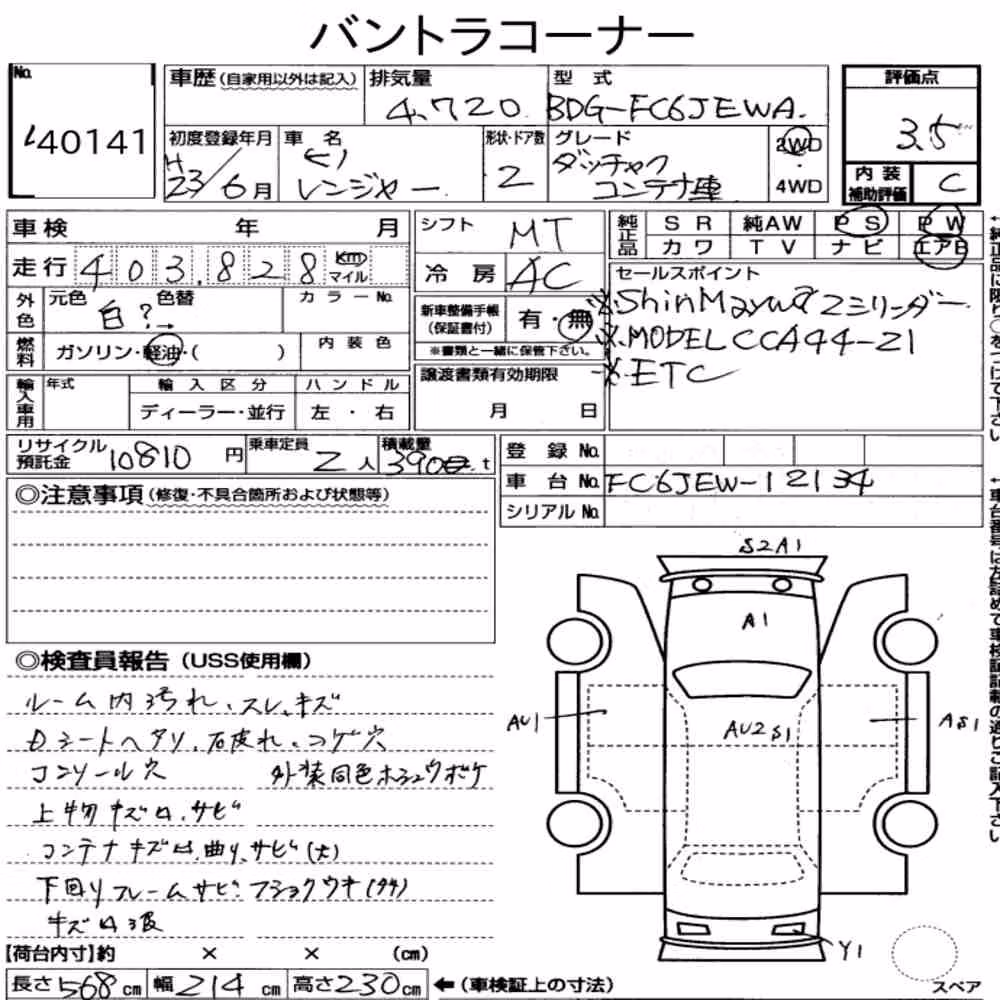 バントラコーナー
No.
40141
車歴(自家用以外は記入)
排気量
4,720
型式
BDG-FC6JEWA.
評価点
3.5
初度登録年月
H23/6月
車名
ヒノ
レンジャー
形状・ドア数
2
グレード
ダッチャク
コンテナ車
2WD
・
4WD
内装
補助評価
C
車検 年 月
シフト MT
純正品
SR 純AW PS PW
カワ TV ナビ エアB
走行 403,828 km マイル
冷房 AC
セールスポイント
※ShinMaywaツミリーダー
※MODEL CCA44-21
※ETC
外色
元色 色替
白?→
カラーNo.
新車整備手帳
(保証書付)
有・無
※書類と一緒に保管下さい。
燃料
ガソリン・軽油・( )
内装色
輸入車用
年式
輸入区分
ハンドル
ディーラー・並行
左・右
譲渡書類有効期限
月 日
リサイクル
預託金
10810円
乗車定員
2人
積載量
t
登録No.
車台No. FC6JEW-12134
シリアルNo.
◎注意事項(修復・不具合箇所および状態等)
S2A1
A1
AU1
AU2S1
AS1
Y1
スペア
◎検査員報告(USS使用欄)
ルーム内汚れ、スレ、キズ
Dシートヘタリ、破れ、コゲ穴
コンソール穴 外装同色ホシュウボケ
上物キズ凹、サビ
コンテナキズ凹、曲り、サビ(大)
下回りフレームサビ、フショクウキ
キズ凹
【荷台内寸】約 × × (cm)
長さ568cm 幅214cm 高さ230cm ←(車検証上の寸法)
←純正品に限り○をつけて下さい
←車台番号は左詰めで車検証記載の通りご記入下さい